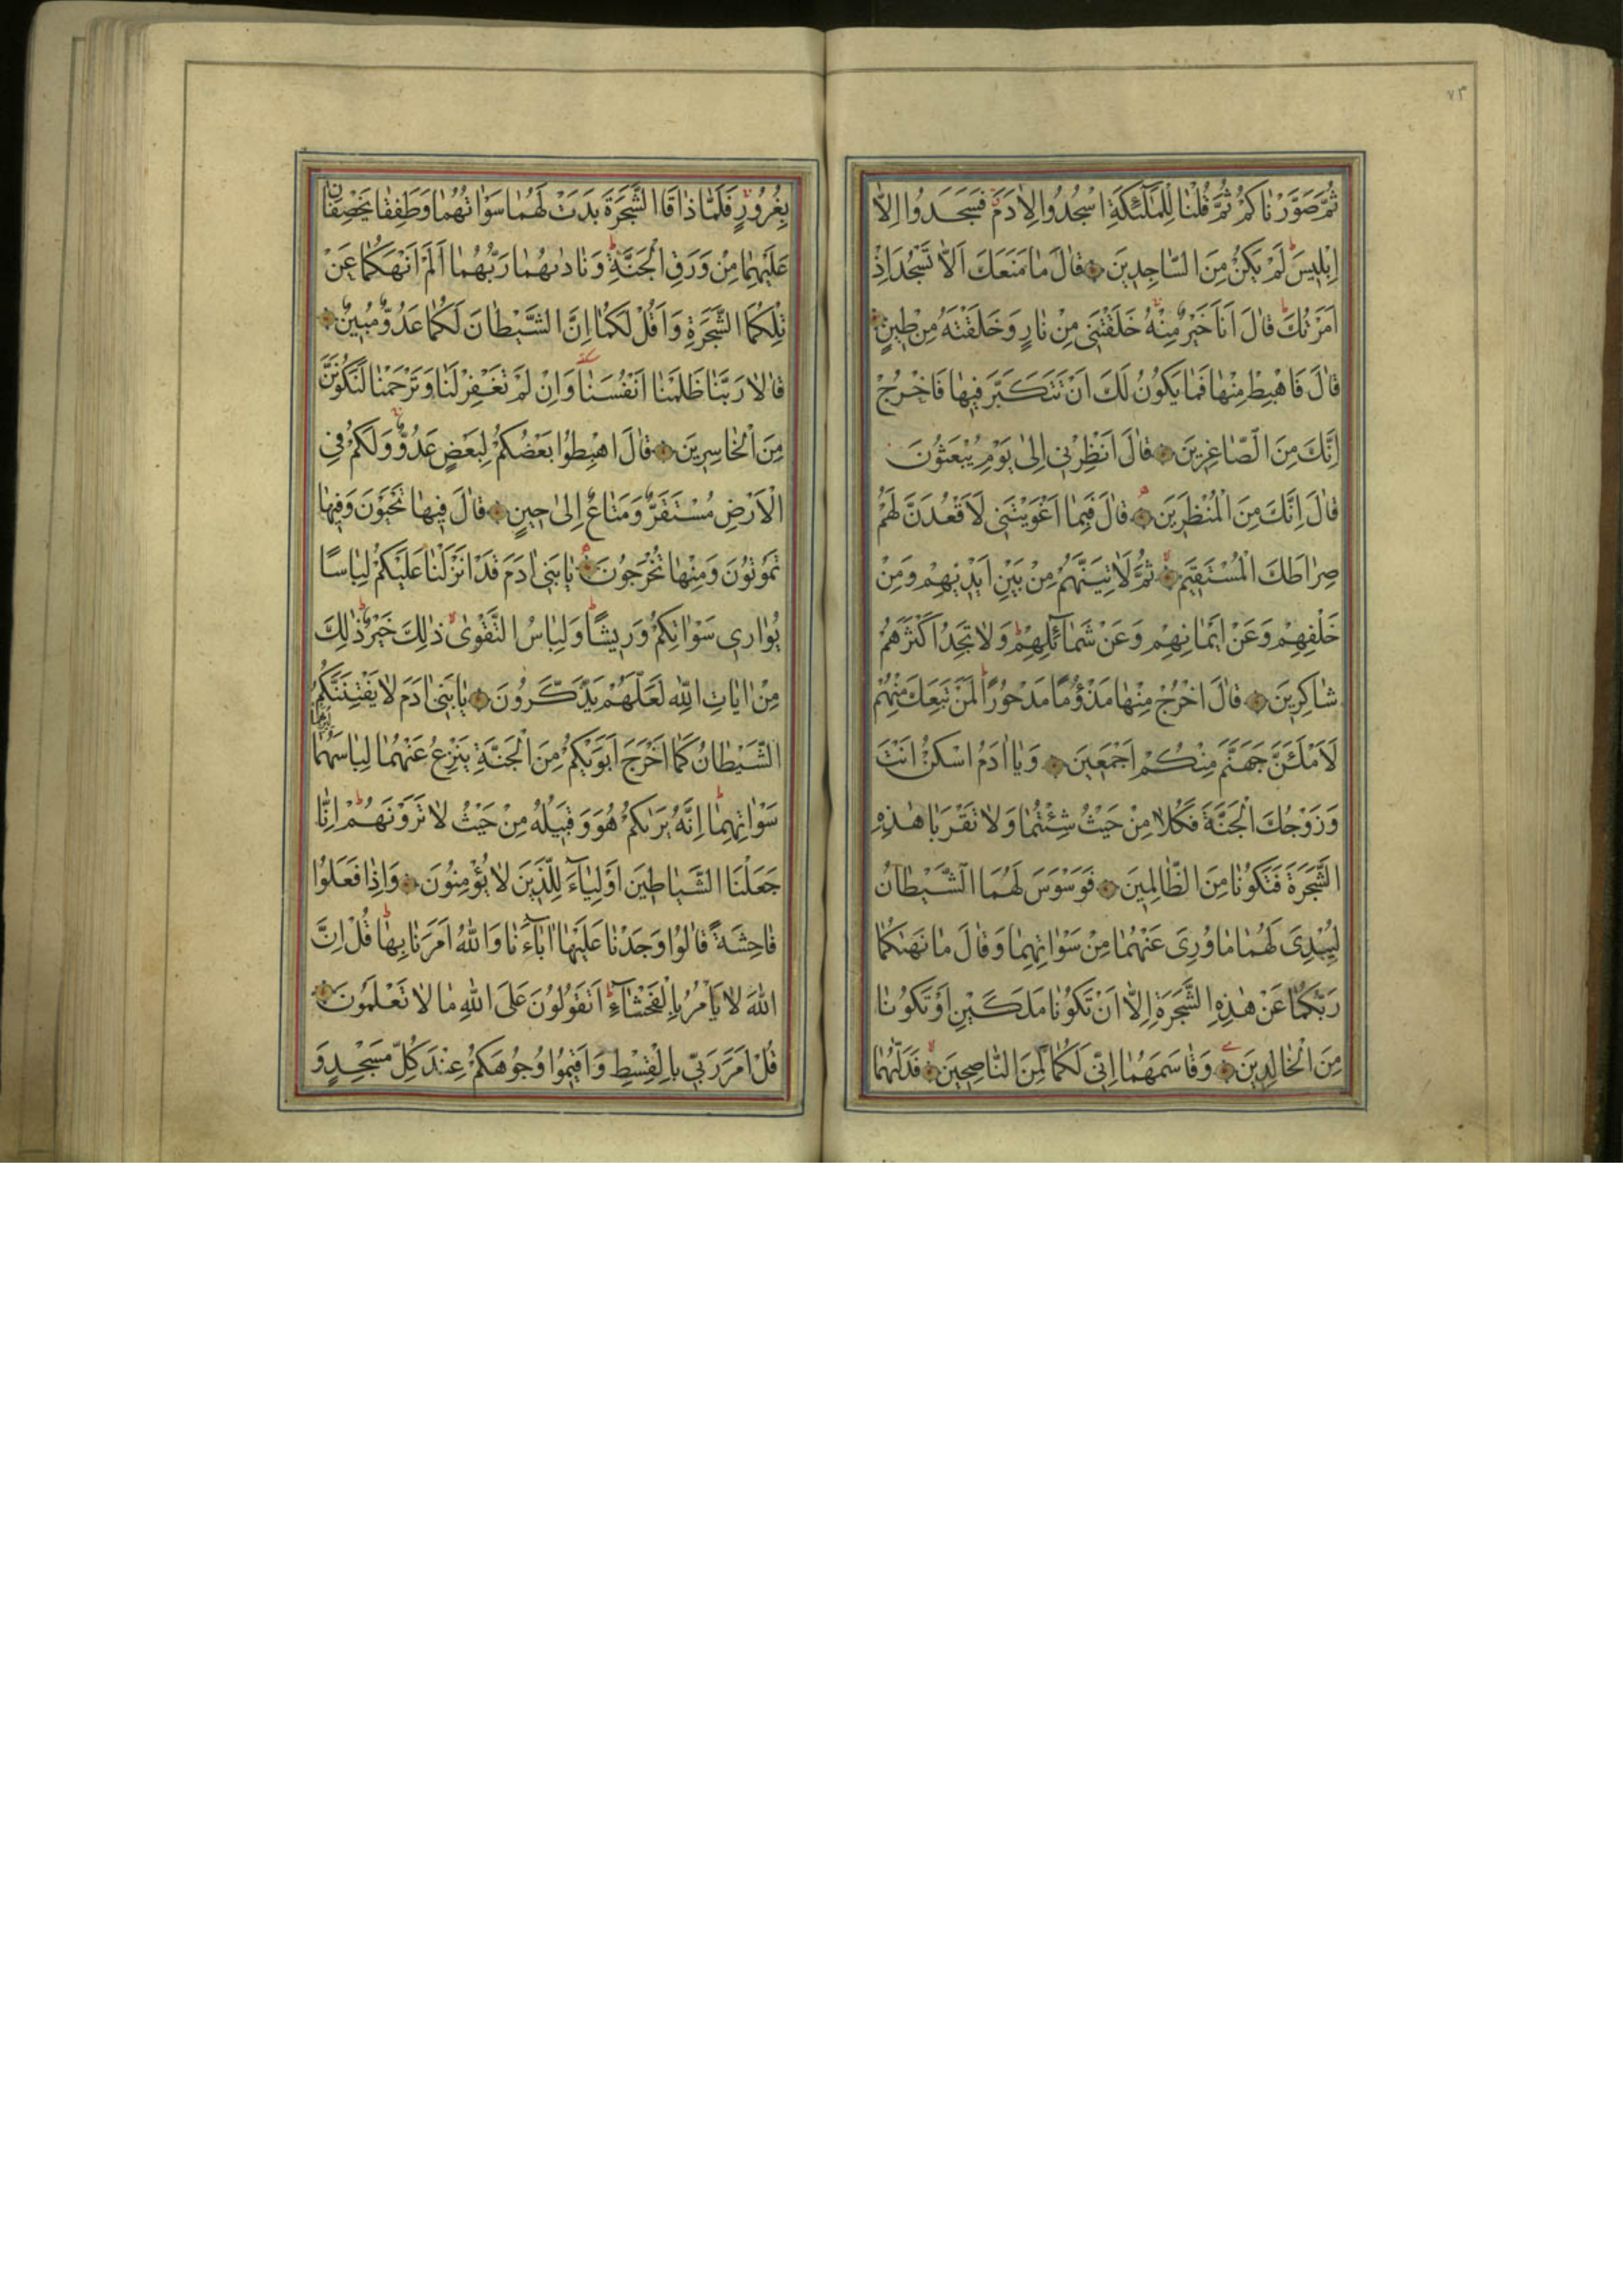 ٧٣
ثُمَّ صَوَّرْنَاكُمْ ثُمَّ قُلْنَا لِلْمَلٰٓئِكَةِ اسْجُدُوا لِاٰدَمَ فَسَجَدُوا اِلَّا
اِبْلِيسَ لَمْ يَكُنْ مِنَ السَّاجِدِينَ قَالَ مَا مَنَعَكَ اَلَّا تَسْجُدَ اِذْ
اَمَرْتُكَ قَالَ اَنَا خَيْرٌ مِنْهُ خَلَقْتَنِي مِنْ نَارٍ وَخَلَقْتَهُ مِنْ طِينٍ
قَالَ فَاهْبِطْ مِنْهَا فَمَا يَكُونُ لَكَ اَنْ تَتَكَبَّرَ فِيهَا فَاخْرُجْ
اِنَّكَ مِنَ الصَّاغِرِينَ قَالَ اَنْظِرْنِي اِلٰى يَوْمِ يُبْعَثُونَ
قَالَ اِنَّكَ مِنَ الْمُنْظَرِينَ قَالَ فَبِمَا اَغْوَيْتَنِي لَاَقْعُدَنَّ لَهُمْ
صِرَاطَكَ الْمُسْتَقِيمَ ثُمَّ لَاٰتِيَنَّهُمْ مِنْ بَيْنِ اَيْدِيهِمْ وَمِنْ
خَلْفِهِمْ وَعَنْ اَيْمَانِهِمْ وَعَنْ شَمَآئِلِهِمْ وَلَا تَجِدُ اَكْثَرَهُمْ
شَاكِرِينَ قَالَ اخْرُجْ مِنْهَا مَذْؤُمًا مَدْحُورًا لَمَنْ تَبِعَكَ مِنْهُمْ
لَاَمْلَئَنَّ جَهَنَّمَ مِنْكُمْ اَجْمَعِينَ وَيَا اٰدَمُ اسْكُنْ اَنْتَ
وَزَوْجُكَ الْجَنَّةَ فَكُلَا مِنْ حَيْثُ شِئْتُمَا وَلَا تَقْرَبَا هٰذِهِ
الشَّجَرَةَ فَتَكُونَا مِنَ الظَّالِمِينَ فَوَسْوَسَ لَهُمَا الشَّيْطَانُ
لِيُبْدِيَ لَهُمَا مَا وُرِيَ عَنْهُمَا مِنْ سَوْاٰتِهِمَا وَقَالَ مَا نَهٰىكُمَا
رَبُّكُمَا عَنْ هٰذِهِ الشَّجَرَةِ اِلَّا اَنْ تَكُونَا مَلَكَيْنِ اَوْ تَكُونَا
مِنَ الْخَالِدِينَ وَقَاسَمَهُمَا اِنِّي لَكُمَا لَمِنَ النَّاصِحِينَ فَدَلّٰىهُمَا
بِغُرُورٍ فَلَمَّا ذَاقَا الشَّجَرَةَ بَدَتْ لَهُمَا سَوْاٰتُهُمَا وَطَفِقَا يَخْصِفَانِ
عَلَيْهِمَا مِنْ وَرَقِ الْجَنَّةِ وَنَادٰىهُمَا رَبُّهُمَا اَلَمْ اَنْهَكُمَا عَنْ
تِلْكُمَا الشَّجَرَةِ وَاَقُلْ لَكُمَا اِنَّ الشَّيْطَانَ لَكُمَا عَدُوٌّ مُبِينٌ
قَالَا رَبَّنَا ظَلَمْنَا اَنْفُسَنَا وَاِنْ لَمْ تَغْفِرْ لَنَا وَتَرْحَمْنَا لَنَكُونَنَّ
مِنَ الْخَاسِرِينَ قَالَ اهْبِطُوا بَعْضُكُمْ لِبَعْضٍ عَدُوٌّ وَلَكُمْ فِي
الْاَرْضِ مُسْتَقَرٌّ وَمَتَاعٌ اِلٰى حِينٍ قَالَ فِيهَا تَحْيَوْنَ وَفِيهَا
تَمُوتُونَ وَمِنْهَا تُخْرَجُونَ يَا بَنِي اٰدَمَ قَدْ اَنْزَلْنَا عَلَيْكُمْ لِبَاسًا
يُوَارِي سَوْاٰتِكُمْ وَرِيشًا وَلِبَاسُ التَّقْوٰى ذٰلِكَ خَيْرٌ ذٰلِكَ
مِنْ اٰيَاتِ اللّٰهِ لَعَلَّهُمْ يَذَّكَّرُونَ يَا بَنِي اٰدَمَ لَا يَفْتِنَنَّكُمُ
الشَّيْطَانُ كَمَا اَخْرَجَ اَبَوَيْكُمْ مِنَ الْجَنَّةِ يَنْزِعُ عَنْهُمَا لِبَاسَهُمَا لِيُرِيَهُمَا
سَوْاٰتِهِمَا اِنَّهُ يَرٰىكُمْ هُوَ وَقَبِيلُهُ مِنْ حَيْثُ لَا تَرَوْنَهُمْ اِنَّا
جَعَلْنَا الشَّيَاطِينَ اَوْلِيَآءَ لِلَّذِينَ لَا يُؤْمِنُونَ وَاِذَا فَعَلُوا
فَاحِشَةً قَالُوا وَجَدْنَا عَلَيْهَا اٰبَآءَنَا وَاللّٰهُ اَمَرَنَا بِهَا قُلْ اِنَّ
اللّٰهَ لَا يَاْمُرُ بِالْفَحْشَآءِ اَتَقُولُونَ عَلَى اللّٰهِ مَا لَا تَعْلَمُونَ
قُلْ اَمَرَ رَبِّي بِالْقِسْطِ وَاَقِيمُوا وُجُوهَكُمْ عِنْدَ كُلِّ مَسْجِدٍ وَ